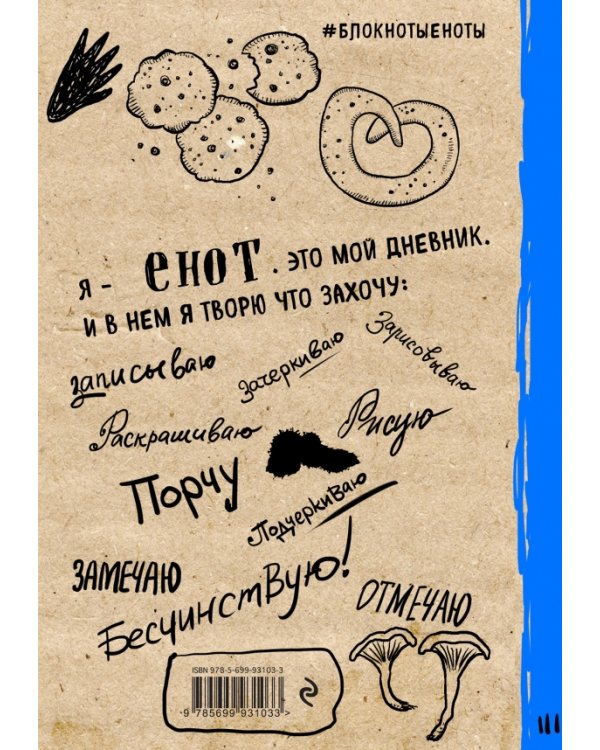 #БЛОКНОТЫЕНОТЫ
Я - ЕНОТ. ЭТО МОЙ ДНЕВНИК.
И В НЕМ Я ТВОРЮ ЧТО ЗАХОЧУ:
записываю
Зачеркиваю
Зарисовываю
Раскрашиваю
Рисую
Порчу
Подчеркиваю
ЗАМЕЧАЮ
Бесчинствую!
ОТМЕЧАЮ
ISBN 978-5-699-93103-3
9 785699 931033 >